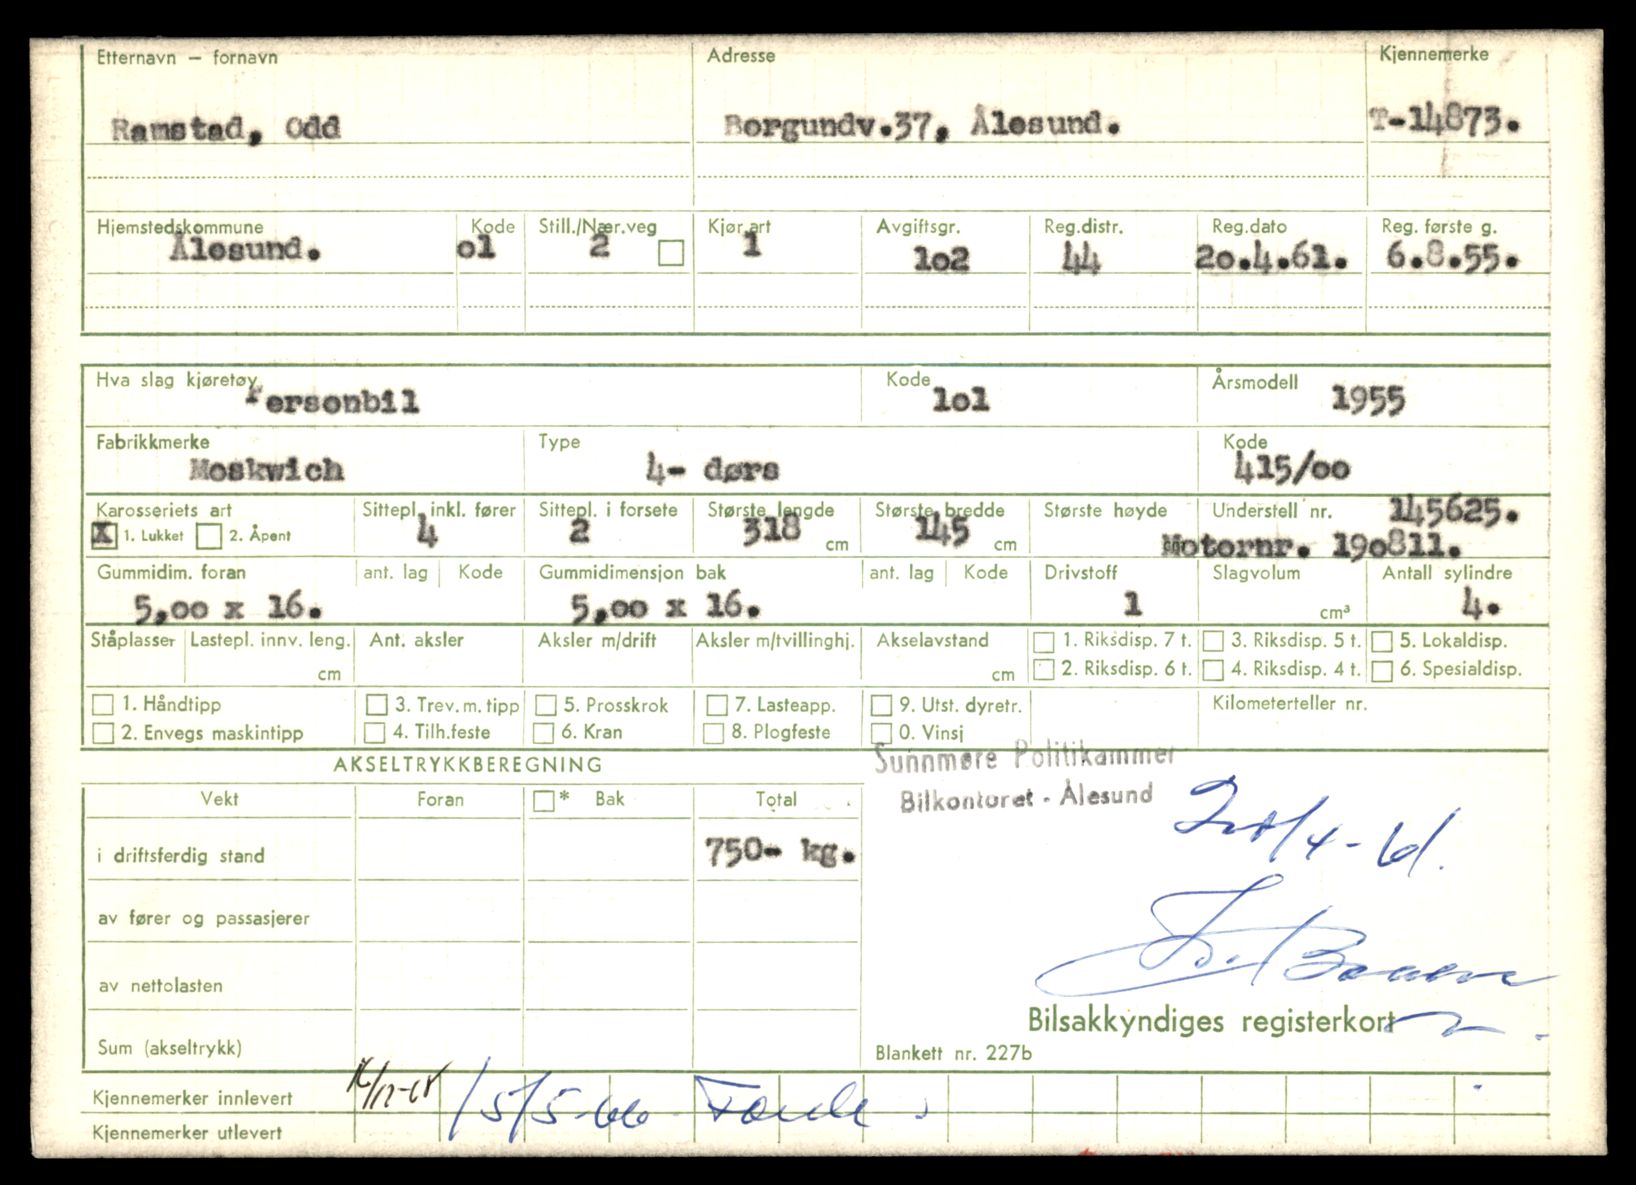 Etternavn — fornavn Adresse Kjennemerke
Ramstad, Odd Borgundv.37, Ålesund. T-14873.
Hjemstedskommune Kode Still./Nær.veg Kjør.art Avgiftsgr. Reg.distr. Reg.dato Reg. første g.
Ålesund. o1 2 1 1o2 44 2o.4.61. 6.8.55.
Hva slag kjøretøy Kode Årsmodell
Personbil 1o1 1955
Fabrikkmerke Type Kode
Moskwich 4- dørs 415/oo
Karosseriets art Sittepl. inkl. fører Sittepl. i forsete Største lengde Største bredde Største høyde Understell nr. 145625.
X 1. Lukket 2. Åpent 4 2 318 cm 145 cm Motornr. 19o811.
Gummidim. foran ant. lag Kode Gummidimensjon bak ant. lag Kode Drivstoff Slagvolum Antall sylindre
5,oo x 16. 5,oo x 16. 1 cm³ 4.
Ståplasser Lastepl. innv. leng. Ant. aksler Aksler m/drift Aksler m/tvillinghj. Akselavstand 1. Riksdisp. 7 t. 3. Riksdisp. 5 t. 5. Lokaldisp.
cm cm 2. Riksdisp. 6 t. 4. Riksdisp. 4 t. 6. Spesialdisp.
1. Håndtipp 3. Trev. m. tipp 5. Prosskrok 7. Lasteapp. 9. Utst. dyretr. Kilometerteller nr.
2. Envegs maskintipp 4. Tilh.feste 6. Kran 8. Plogfeste 0. Vinsj
AKSELTRYKKBEREGNING
Sunnmøre Politikammer
Bilkontoret - Ålesund
Vekt Foran * Bak Total
20/4-61.
i driftsferdig stand 750- kg.
av fører og passasjerer
av nettolasten
Bilsakkyndiges registerkort
Sum (akseltrykk)
Blankett nr. 227b
Kjennemerker innlevert
15/5-66
Kjennemerker utlevert